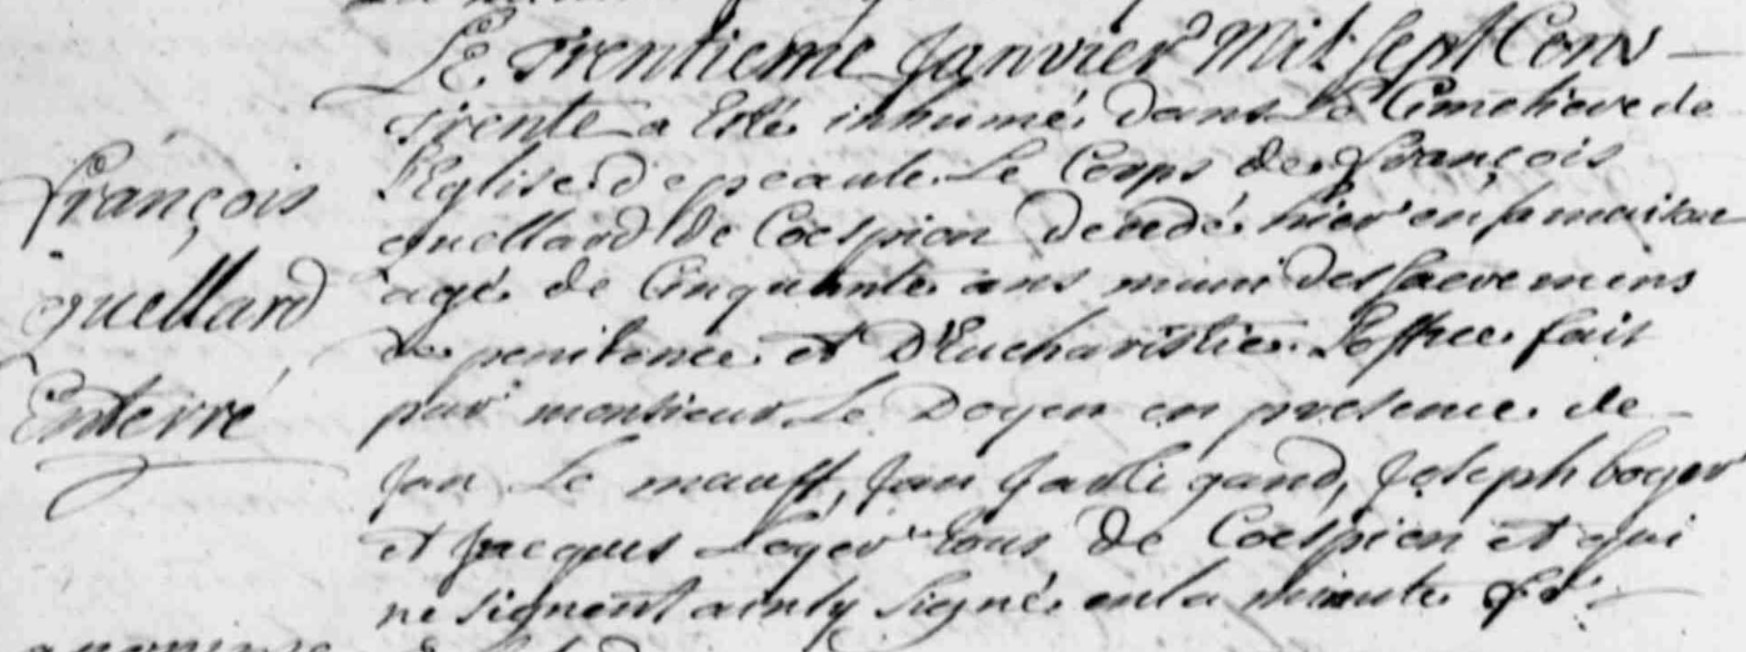 Le Trentieme Janvier Mil Sept Cens
Trente a Esté inhumé dans Le Cimetiere de
L'Eglise de peaule Le Corps de François
François
quellard de Coespion decedé hier en sa maison
quellard
agé de Cinquante ans muni des sacremens
de penitence et D'Eucharistie. L'office fait
Enterré
par monsieur Le Doyen en presence de
Jan Le mauff, Jan gand, Joseph boyer
et Jacques Loyer tous de Coespion et qui
ne signent ainsy signé en la minute